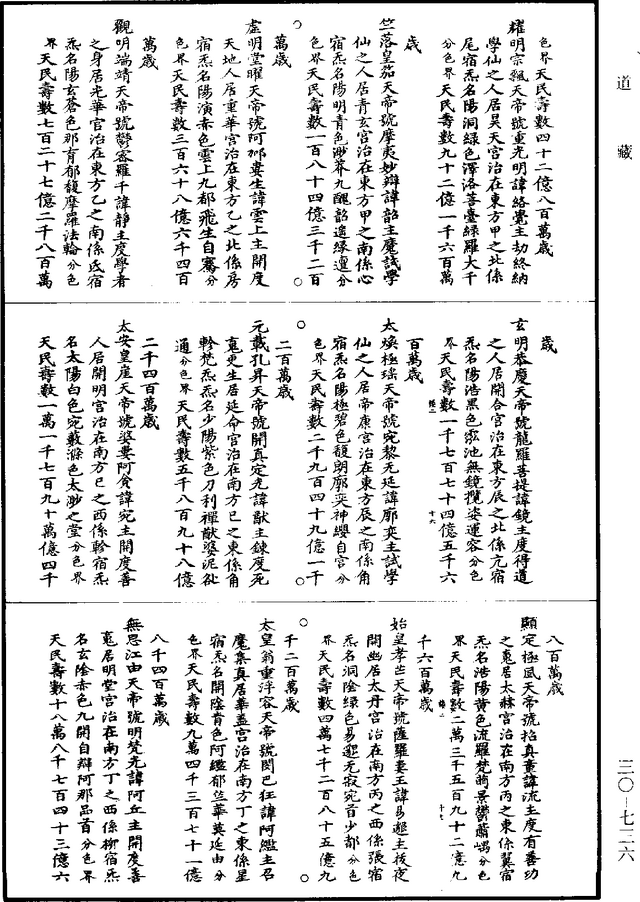 道藏
色界天民壽數四十二億八百萬歲
耀明宗飄天帝號重光明諱絡覺主劫終納
學仙之人居昊天宮治在東方甲之北係
尾宿炁名陽洞綠色澤洛菩臺綠羅大千
分色界天民壽數九十二億一千六百萬
歲
竺落皇笳天帝號摩夷妙辯諱韶主魔試學
仙之人居青玄宮治在東方甲之南係心
宿炁名陽明青色渺莽九醜韶遶緣邅分
色界天民壽數一百八十四億三千二百
萬歲
虛明堂曜天帝號阿那婁生諱雲上主開度
天地人居重華宮治在東方乙之北係房
宿炁名陽演赤色雲上九都飛生自騫分
色界天民壽數三百六十八億六千四百
萬歲
觀明端靖天帝號鬱密羅千諱靜主度學者
之身居光華宮治在東方乙之南係氐宿
炁名陽玄蒼色那育郁馥摩羅法輪分色
界天民壽數七百二十七億二千八百萬
歲
玄明恭慶天帝號龍羅菩提諱鏡主度得道
之人居開合宮治在東方辰之北係亢宿
炁名陽浩黑色霐池無鏡攬姿運容分色
界天民壽數一千七百七十四億五千六
百萬歲
十六
太煥極瑤天帝號宛黎无延諱廓奕主試學
仙之人居帝康宮治在東方辰之南係角
宿炁名陽極碧色馥朗廓奕神纓自宮分
色界天民壽數二千九百四十九億一千
二百萬歲
元載孔昇天帝號開真定光諱猷主鍊度死
䰟更生居延命宮治在南方巳之東係角
軫梵炁炁名少陽紫色刀利禪猷婆泥咎
通分色界天民壽數五千八百九十八億
二千四百萬歲
太安皇崖天帝號婆婁阿貪諱宛主開度善
人居開明宮治在南方巳之西係軫宿炁
名太陽白色宛藪滌色太渺之堂分色界
天民壽數一萬一千七百九十萬億四千
八百萬歲
顯定極風天帝號招真童諱流主度有善功
之䰟居太赫宮治在南方丙之東係翼宿
炁名浩陽黃色流羅梵萌景鬱蕭嵎分色
界天民壽數二萬三千五百九十二億九
千六百萬歲
十七
始皇孝芒天帝號薩羅婁王諱易邈主拔夜
開幽居太丹宮治在南方丙之西係張宿
炁名洞陰綠色易邈无寂宛首少都分色
界天民壽數四萬七千二百八十五億九
千二百萬歲
太皇翁重浮容天帝號閔巴狂諱阿鑑主召
魔集真居華蓋宮治在南方丁之東係星
宿炁名開陰青色阿鑑郁竺華莫延由分
色界天民壽數九萬四千三百七十一億
八千四百萬歲
無思江由天帝號明梵光諱阿丘主開度善
䰟居明堂宮治在南方丁之西係柳宿炁
名玄陰赤色九開自辯阿那品首分色界
天民壽數十八萬八千七百四十三億六
三〇—七二六